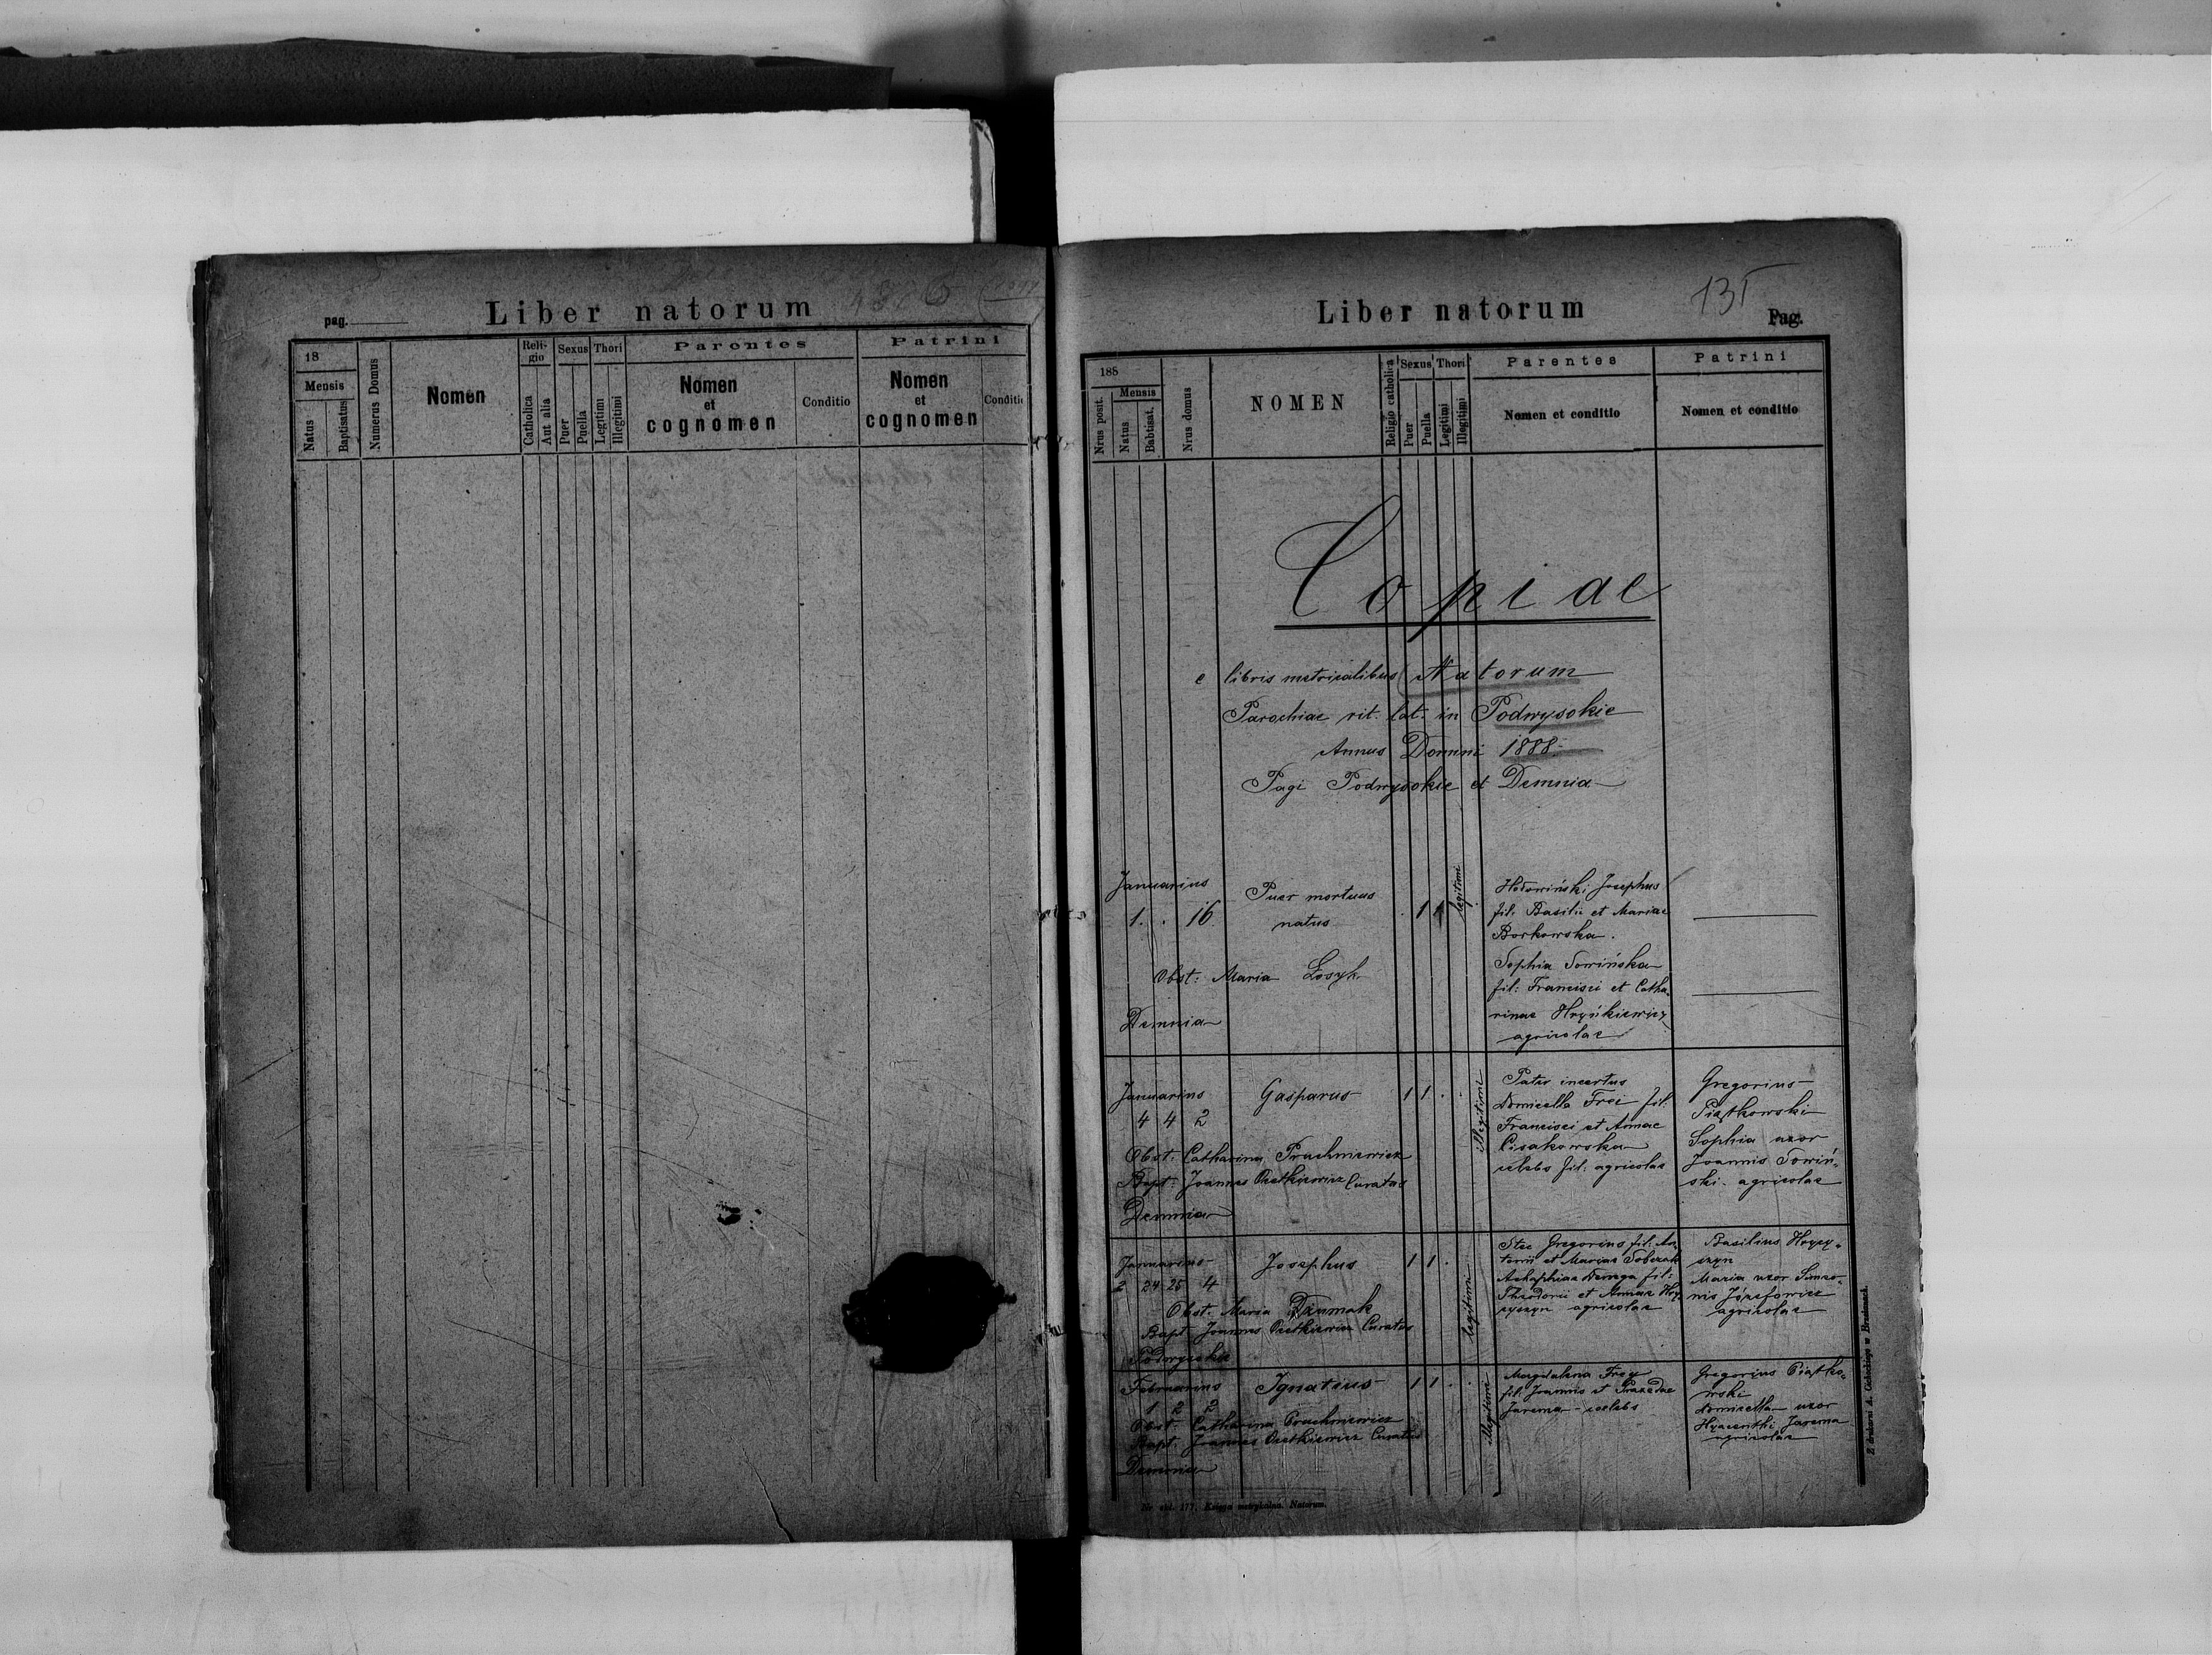 Liber natorum
pag.
18
Mensis
Natus
Baptisatus
Numerus Domus
Nomen
Religio
Catholica
Aut alia
Sexus
Puer
Puella
Thori
Legitimi
Illegitimi
Parentes
Nomen
et
cognomen
Conditio
Patrini
Nomen
et
cognomen
Conditio
Liber natorum
131
Pag.
188
Nrus posit.
Mensis
Natus
Babtisat.
Nrus domus
NOMEN
Religio catholica
Sexus
Puer
Puella
Thori
Legitimi
Illegitimi
Parentes
Nomen et conditio
Patrini
Nomen et conditio
Copiae
e libris metricalibus Natorum
Parochiae rit. lat. in Podwysokie
Annus Domini 1888
Pagi Podwysokie et Demnia
Januarius
1. . 16
Puer mortuus
natus
1 1
legitimi
Josephus
fil. Basilii et Mariae
Borkowska.
Sophia Sowińska
fil: Francisci et Catha-
rinae Hryńkiewicz
agricolae
Obst: Maria Łosyk
Demnia
Januarius
4 4 2
Gasparus
1 1 .
illegitimi
Pater incertus
Domicella Frei fil.
Francisci et Annae
Cisakowska
celebs fil: agricolae
Gregorius
Piątkowski
Sophia uxor
Joannis Sowiń-
ski agricolae
Obst: Catharina Prachniewicz
Bapt: Joannes Curatus
Demnia
Januarius
2 24 25 4
Josephus
1 1 .
legitimi
Stec Gregorius fil:
et Mariae
fil:
Theodorii et Annae
agricolae
Basilius
Maria uxor Simeo-
nis Józefowicz
agricolae
Obst. Maria
Bapt Joannes Curatus
Podwysokie
Februarius
1 2 2
Ignatius
1 1
illegitimi
Magdalena Frey
fil: Joannis et Praxedae
Jarema - celebs
Gregorius Piątko-
wski
Domicella uxor
Hyacinthi Jarema
agricolae
Obst Catharina Prachniewicz
Bapt. Joannes Curatus
Demnia
Księga metrykalna. Natorum.